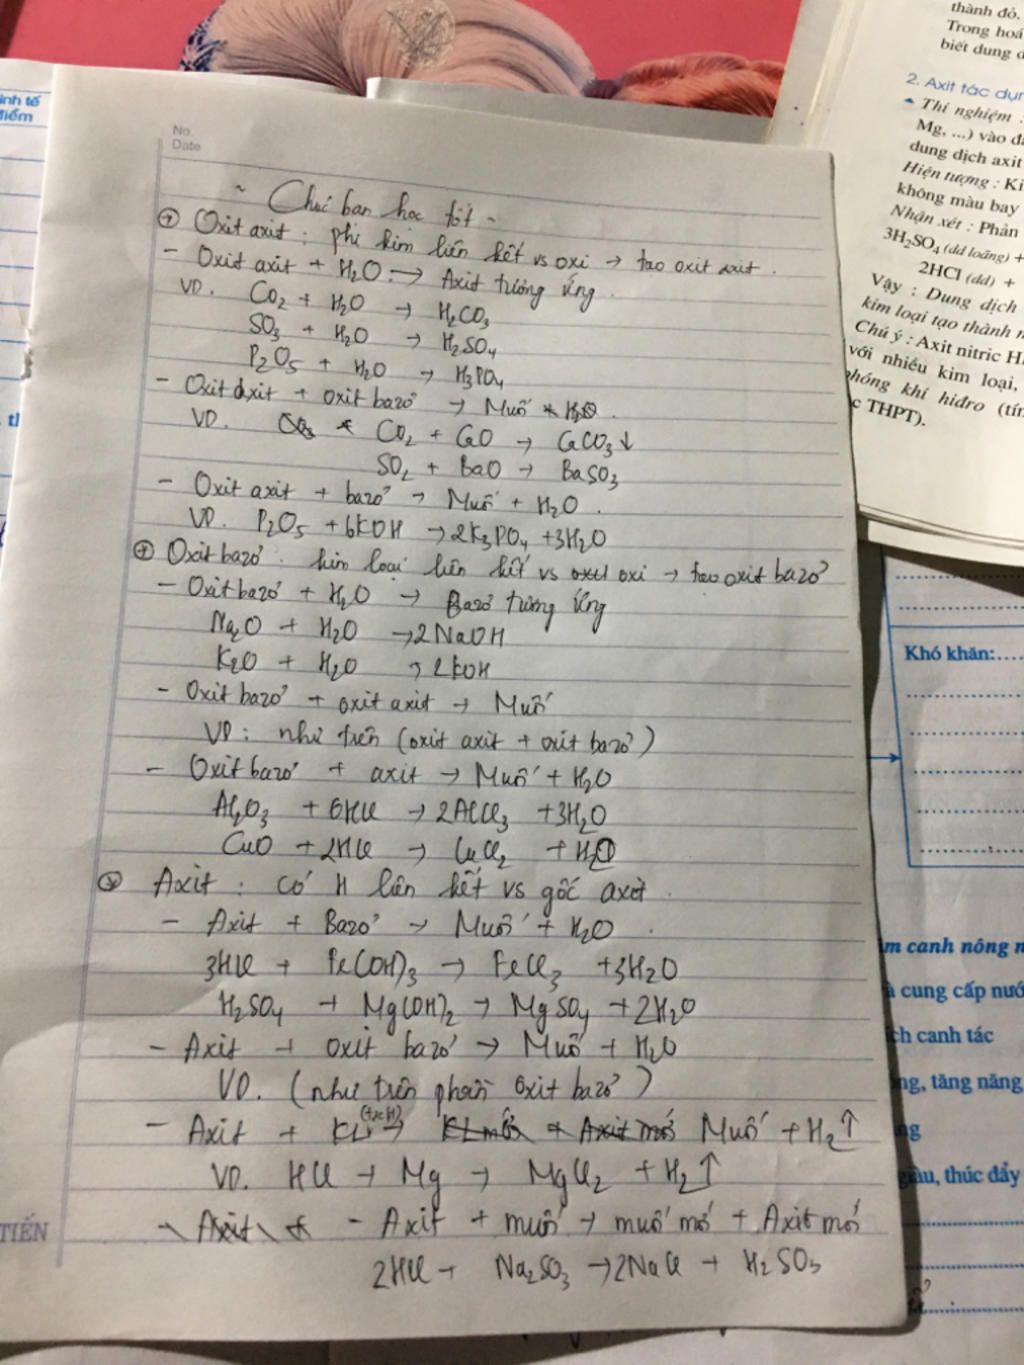 No.
Date
~ Chúc bạn học tốt ~
+ Oxit axit : phi kim liên kết vs oxi → tạo oxit axit .
- Oxit axit + H₂O → Axit tương ứng
VD. CO₂ + H₂O → H₂CO₃
SO₃ + H₂O → H₂SO₄
P₂O₅ + H₂O → H₃PO₄
- Oxit axit + oxit bazơ → Muối
VD. CO₂ + CaO → CaCO₃↓
SO₂ + BaO → BaSO₃
- Oxit axit + bazơ → Muối + H₂O .
VD. P₂O₅ + 6KOH → 2K₃PO₄ + 3H₂O
+ Oxit bazơ . kim loại liên kết vs oxi → tạo oxit bazơ
- Oxit bazơ + H₂O → Bazơ tương ứng
Na₂O + H₂O → 2NaOH
K₂O + H₂O → 2KOH
- Oxit bazơ + oxit axit → Muối
VD : như trên (oxit axit + oxit bazơ)
- Oxit bazơ + axit → Muối + H₂O
Al₂O₃ + 6HCl → 2AlCl₃ + 3H₂O
CuO + 2HCl → CuCl₂ + H₂O
+ Axit : có H liên kết vs gốc axit
- Axit + Bazơ → Muối + H₂O .
3HCl + Fe(OH)₃ → FeCl₃ + 3H₂O
H₂SO₄ + Mg(OH)₂ → MgSO₄ + 2H₂O
- Axit + oxit bazơ → Muối + H₂O
VD. (như trên phần Oxit bazơ)
- Axit + KL → Muối + H₂↑
VD. HCl + Mg → MgCl₂ + H₂↑
- Axit + muối → muối mới + Axit mới
2HCl + Na₂SO₃ → 2NaCl + H₂SO₃
thành đỏ.
Trong hoá
biết dung d
2. Axit tác dụn
Thí nghiệm :
Mg, ...) vào
dung dịch axit
Hiện tượng : Ki
không màu bay
Nhận xét : Phản
3H₂SO₄ (dd loãng) +
2HCl (dd) +
Vậy : Dung dịch
kim loại tạo thành
Chú ý : Axit nitric
với nhiều kim loại,
phóng khí hiđro (tín
THPT).
inh tế
điểm
TIẾN
Khó khăn:....
m canh nông n
cung cấp nướ
ch canh tác
ng, tăng năng
ng
giàu, thúc đẩy